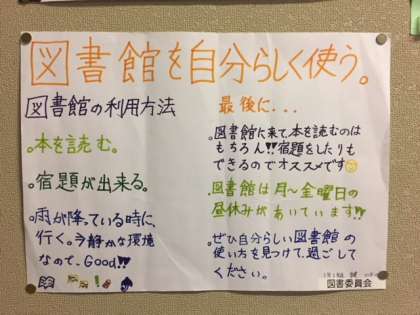 図書館を自分らしく使う。
図書館の利用方法
。本を読む。
。宿題が出来る。
。雨が降っている時に、
行く。今静かな環境
なので、Good!!
最後に...
。図書館に来て、本を読むのは
もちろん!!宿題をしたりも
できるのでオススメです
。図書館は月〜金曜日の
昼休みがあいています!!
。ぜひ自分らしい図書館の
使い方を見つけて、過ごして
ください。
図書委員会